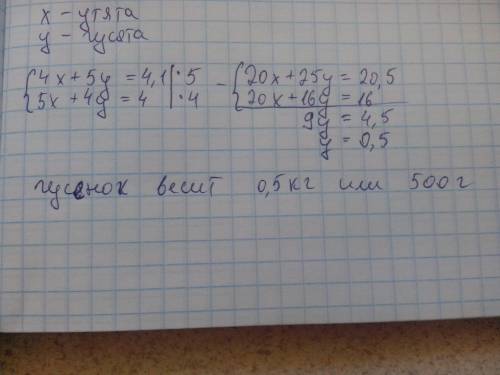 x - утята
y - гусята
{4x + 5y = 4,1 | · 5 - {20x + 25y = 20,5
5x + 4y = 4 | · 4 20x + 16y = 16
9y = 4,5
y = 0,5
гусенок весит 0,5 кг или 500 г